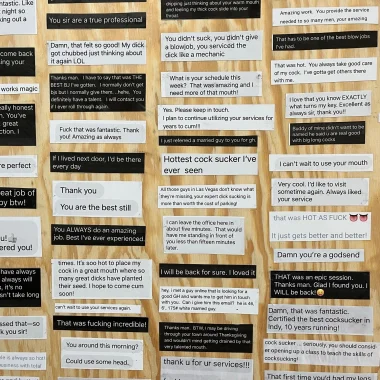 Like
night so
king out a
come back
king your
works magic
really honest
n. You've
great
ction. I
re perfect
eat job of
by btw!
u!
ered you!
have always
always
It's not
n't take long
ssed that—so
k you sir!
You sir are a true professional
Damn, that felt so good! My dick
got chubbed just thinking about
it again LOL
Thanks man. I have to say that was THE
BEST BJ I've gotten. I normally don't get
bjs but I normally give them...hehe. You
definitely have a talent. I will contact you
if I ever roll through again.
Fuck that was fantastic. Thank
you! Amazing as always
If I lived next door, I'd be there
every day
Thank you
You are the best still
You ALWAYS do an amazing
job. Best I've ever experienced.
times. It's soo hot to place my
cock in a great mouth where so
many great dicks have planted
their seed. I hope to come cum
soon!
can't wait to use your services again.
That was fucking incredible!
You around this morning?
Could use some head.
skipping just thinking about your warm mouth
and feeling my thick cock slide into your
throat
You didn't suck, you didn't give
a blowjob, you serviced the
dick like a mechanic
What is your schedule this
week? That was amazing and I
need more of that mouth!
Yes. Please keep in touch.
I plan to continue utilizing your services for
years to cum!!!
I just referred a married guy to you for gh.
Hottest cock sucker I've
ever seen
All those guys in Las Vegas don't know what
they're missing, your expert dick sucking is
more than worth the cost of parking!
I can leave the office here in
about five minutes. That would
have me standing in front of
you less than fifteen minutes
later.
I will be back for sure. I loved it
hey, i met a guy online that is looking for a
good GH and wants me to get him in touch
with you. Can I give him this email? he is 46,
6', 175# white married guy.
Thanks man. BTW, I may be driving
through your town around Thanksgiving
and wouldn't mind getting drained by that
very talented mouth.
thank u for ur services!!!
Amazing work. You provide the service
needed to so many men, your amazing
That has to be one of the best blow jobs
I've had.
That was hot. You always take good care
of my cock. I've gotten get others there
with me.
I love that you know EXACTLY
what turns my key. Excellent as
always sir, thank you!!
Buddy of mine didn't want to be
named he said u are real good
with big long cocks
I can't wait to use your mouth
Very cool. I'd like to visit
sometime again. Always liked
your service
that was HOT AS FUCK
It just gets better and better!
Damn you're a godsend
THAT was an epic session.
Thanks man. Glad I found you. I
WILL be back!
Damn, that was fantastic.
Certified the best cocksucker in
Indy, 10 years running!
cock sucker ... seriously, you should consid
er opening up a class to teach the skills of
cocksucking!
That first time you'd had my legs